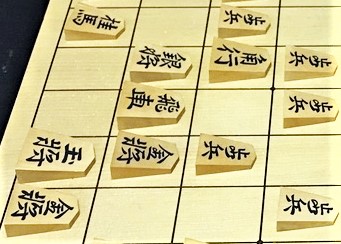 桂馬
歩兵
銀将
角行
歩兵
飛車
歩兵
王将
金将
歩兵
金将
歩兵